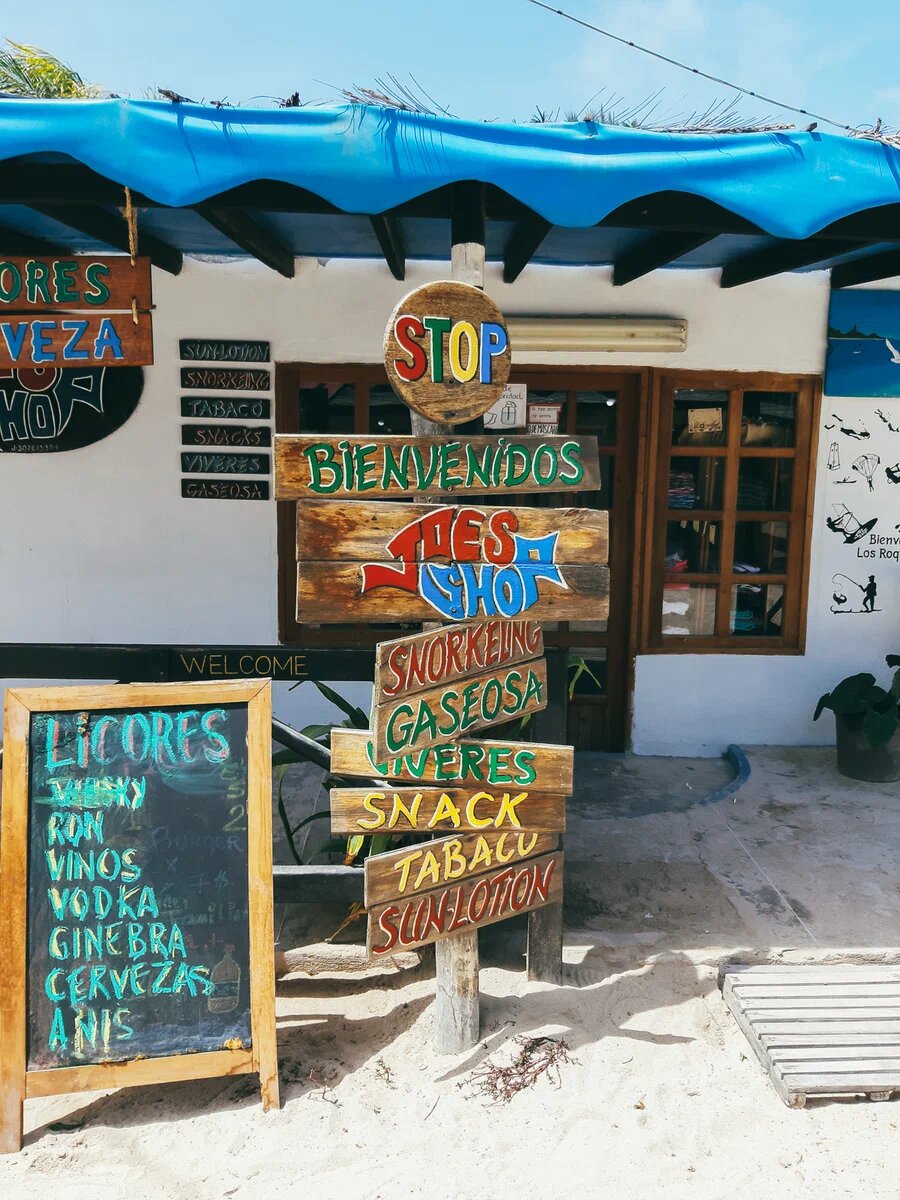 ORES
VEZA
SHOP
J-30761535-1
SUN-LOTION
SNORKELING
TABACO
SNACKS
VIVERES
GASEOSA
STOP
BIENVENIDOS
JOES
SHOP
SNORKELING
GASEOSA
VIVERES
SNACK
TABACO
SUN-LOTION
WELCOME
LICORES
RON
VINOS
VODKA
GINEBRA
CERVEZAS
ANIS
Bienve
Los Roq